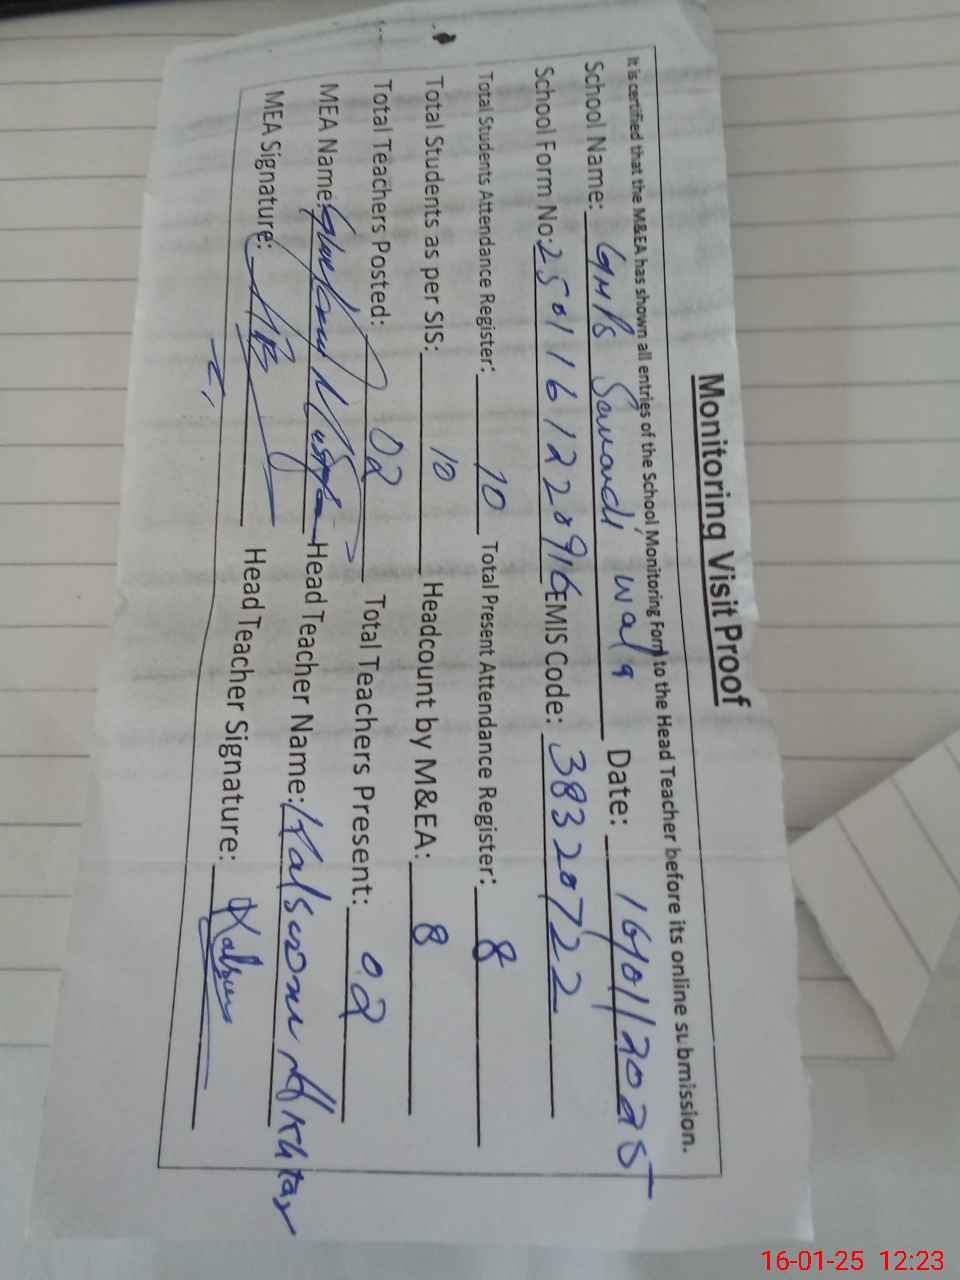 Monitoring Visit Proof
It is certified that the M&EA has shown all entries of the School Monitoring Form to the Head Teacher before its online submission.
School Name: GMPS Sawandi wala Date: 16/01/2025
School Form No: 2501161220916 EMIS Code: 38320722
Total Students Attendance Register: 10 Total Present Attendance Register: 8
Total Students as per SIS: 10 Headcount by M&EA: 8
Total Teachers Posted: 02 Total Teachers Present: 02
MEA Name: Ghulam Mustafa Head Teacher Name: Kalsoom Akhtar
MEA Signature: Head Teacher Signature: Kalsoom
16-01-25 12:23